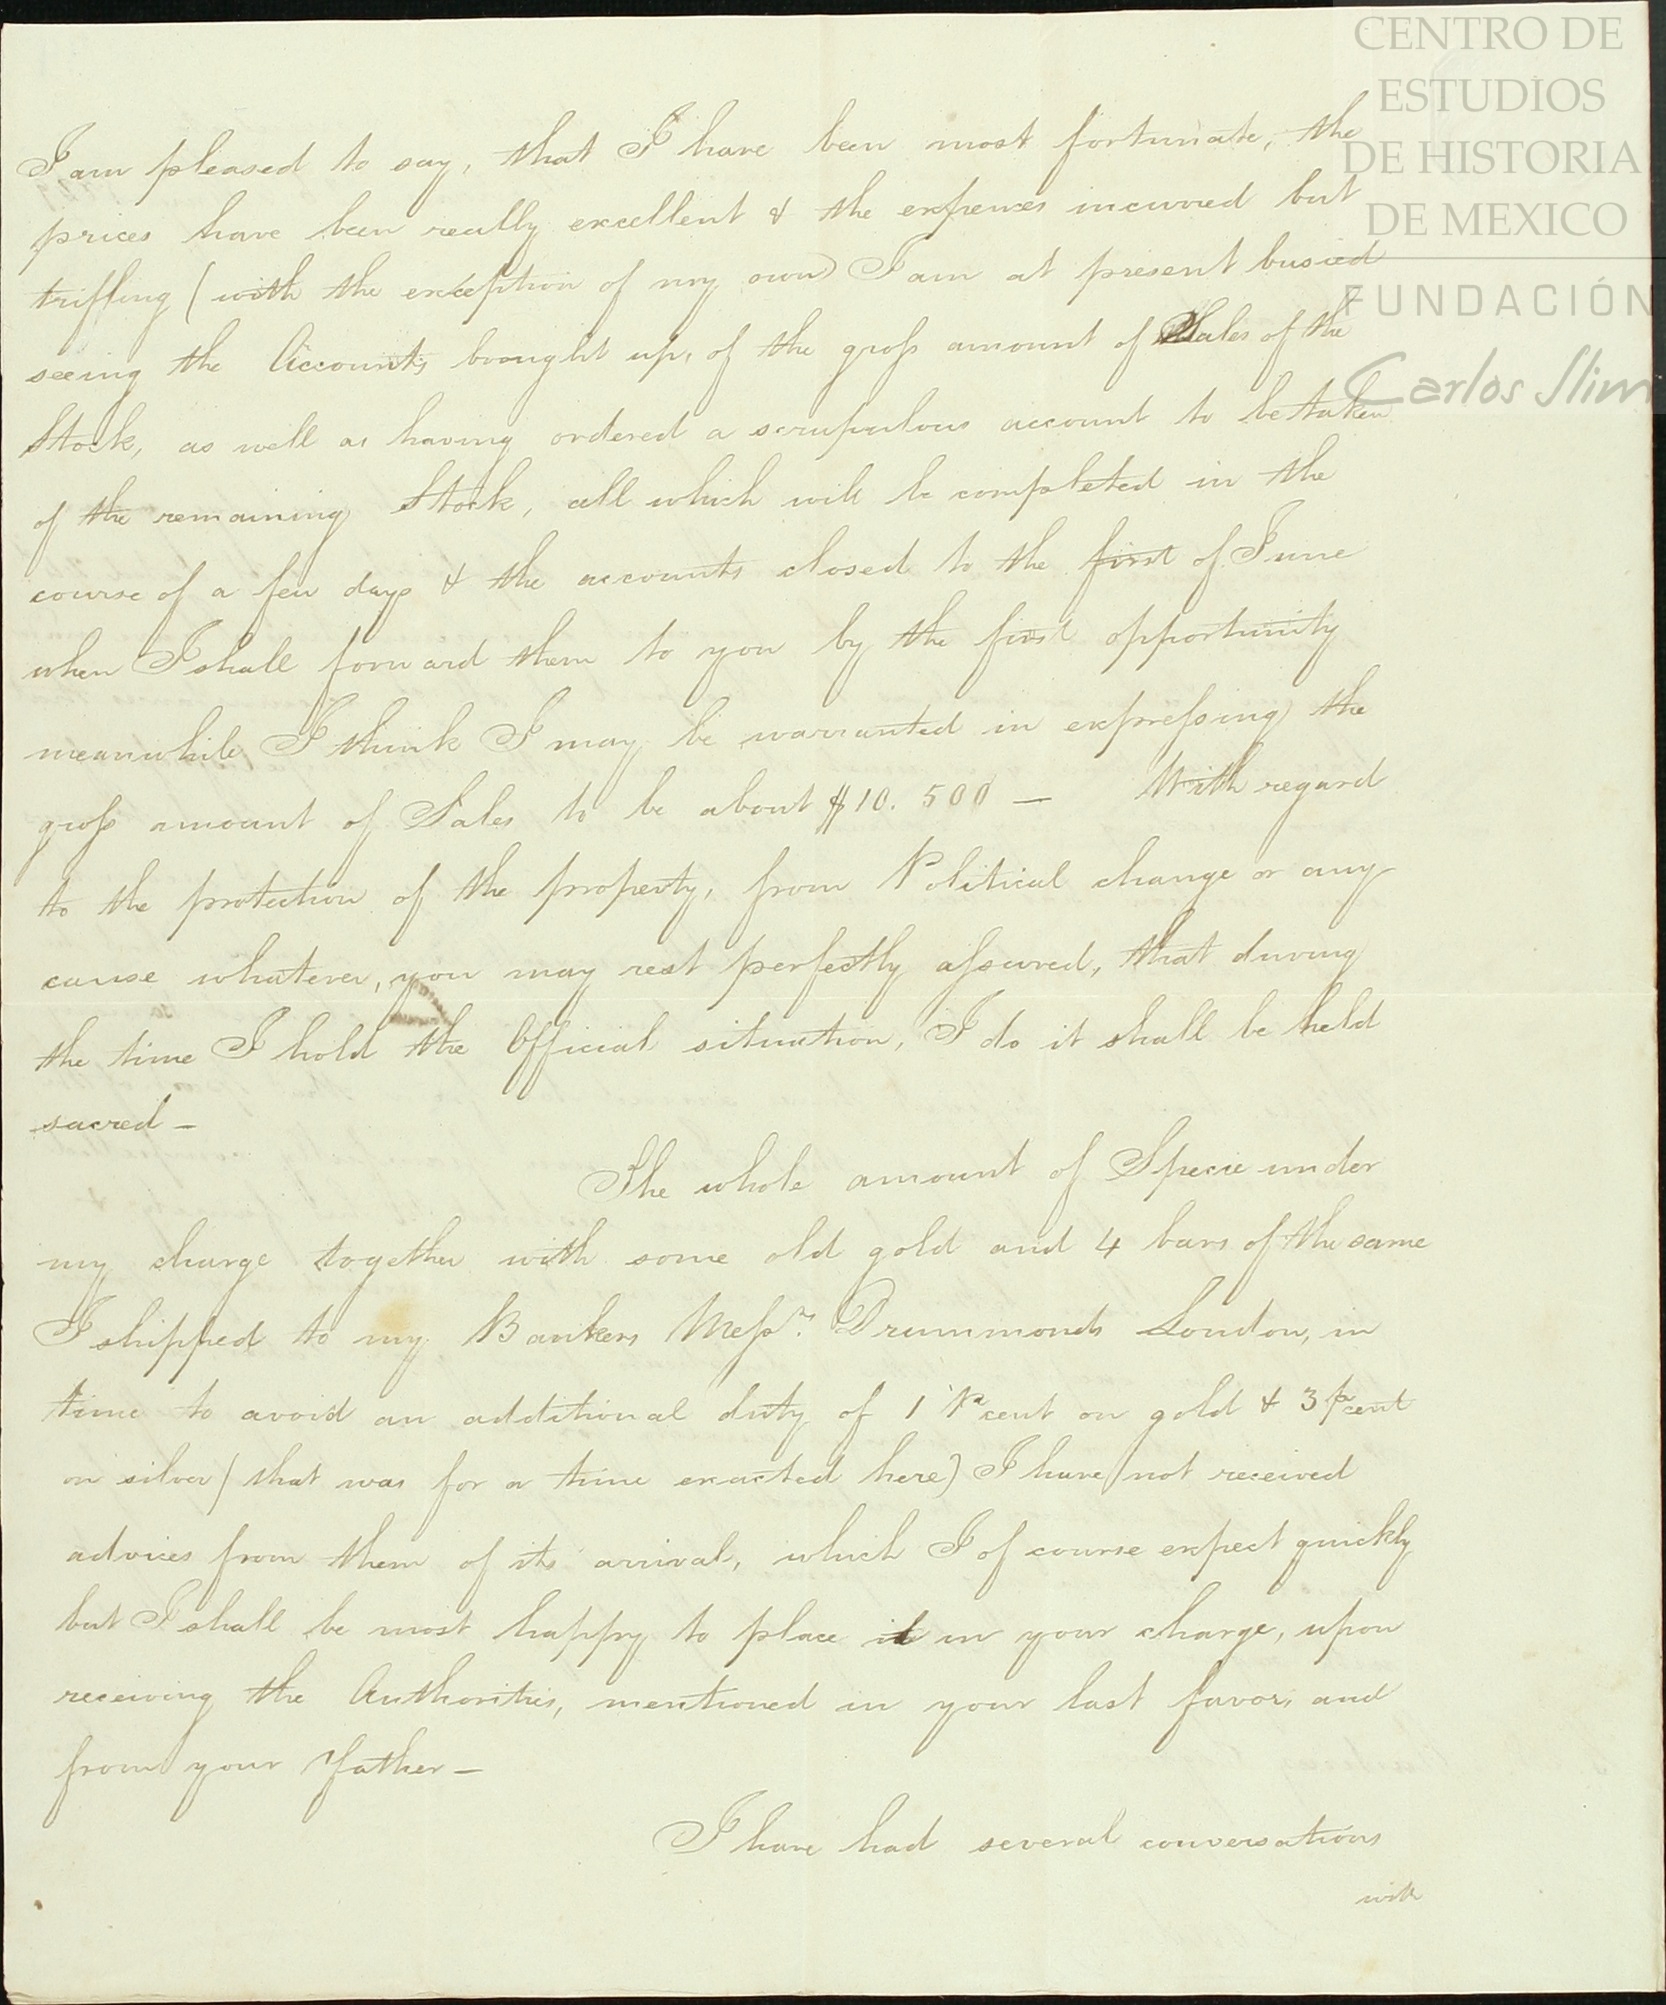 CENTRO DE
ESTUDIOS
DE HISTORIA
DE MEXICO
FUNDACIÓN
Carlos Slim
I am pleased to say, that I have been most fortunate, the
prices have been really excellent & the expences incurred but
trifling (with the exception of my own) I am at present busied
seeing the Accounts brought up, of the gross amount of Sales of the
Stock, as well as having ordered a scrupulous account to be taken
of the remaining Stock, all which will be completed in the
course of a few days & the accounts closed to the first of June
when I shall forward them to you by the first opportunity
meanwhile I think I may be warranted in expressing the
gross amount of Sales to be about $10.500 — With regard
to the protection of the property, from Political change or any
cause whatever, you may rest perfectly assured, that during
the time I hold the Official situation, I do it shall be held
sacred —
The whole amount of Specie under
my charge together with some old gold and 4 bars of the same
I shipped to my Bankers Messrs. Drummonds London, in
time to avoid an additional duty of 1 Pr cent on gold & 3 pr cent
on silver (that was for a time exacted here) I have not received
advices from them of its arrival, which I of course expect quickly
but I shall be most happy to place it in your charge, upon
receiving the Authorities, mentioned in your last favor, and
from your Father —
I have had several conversations
with